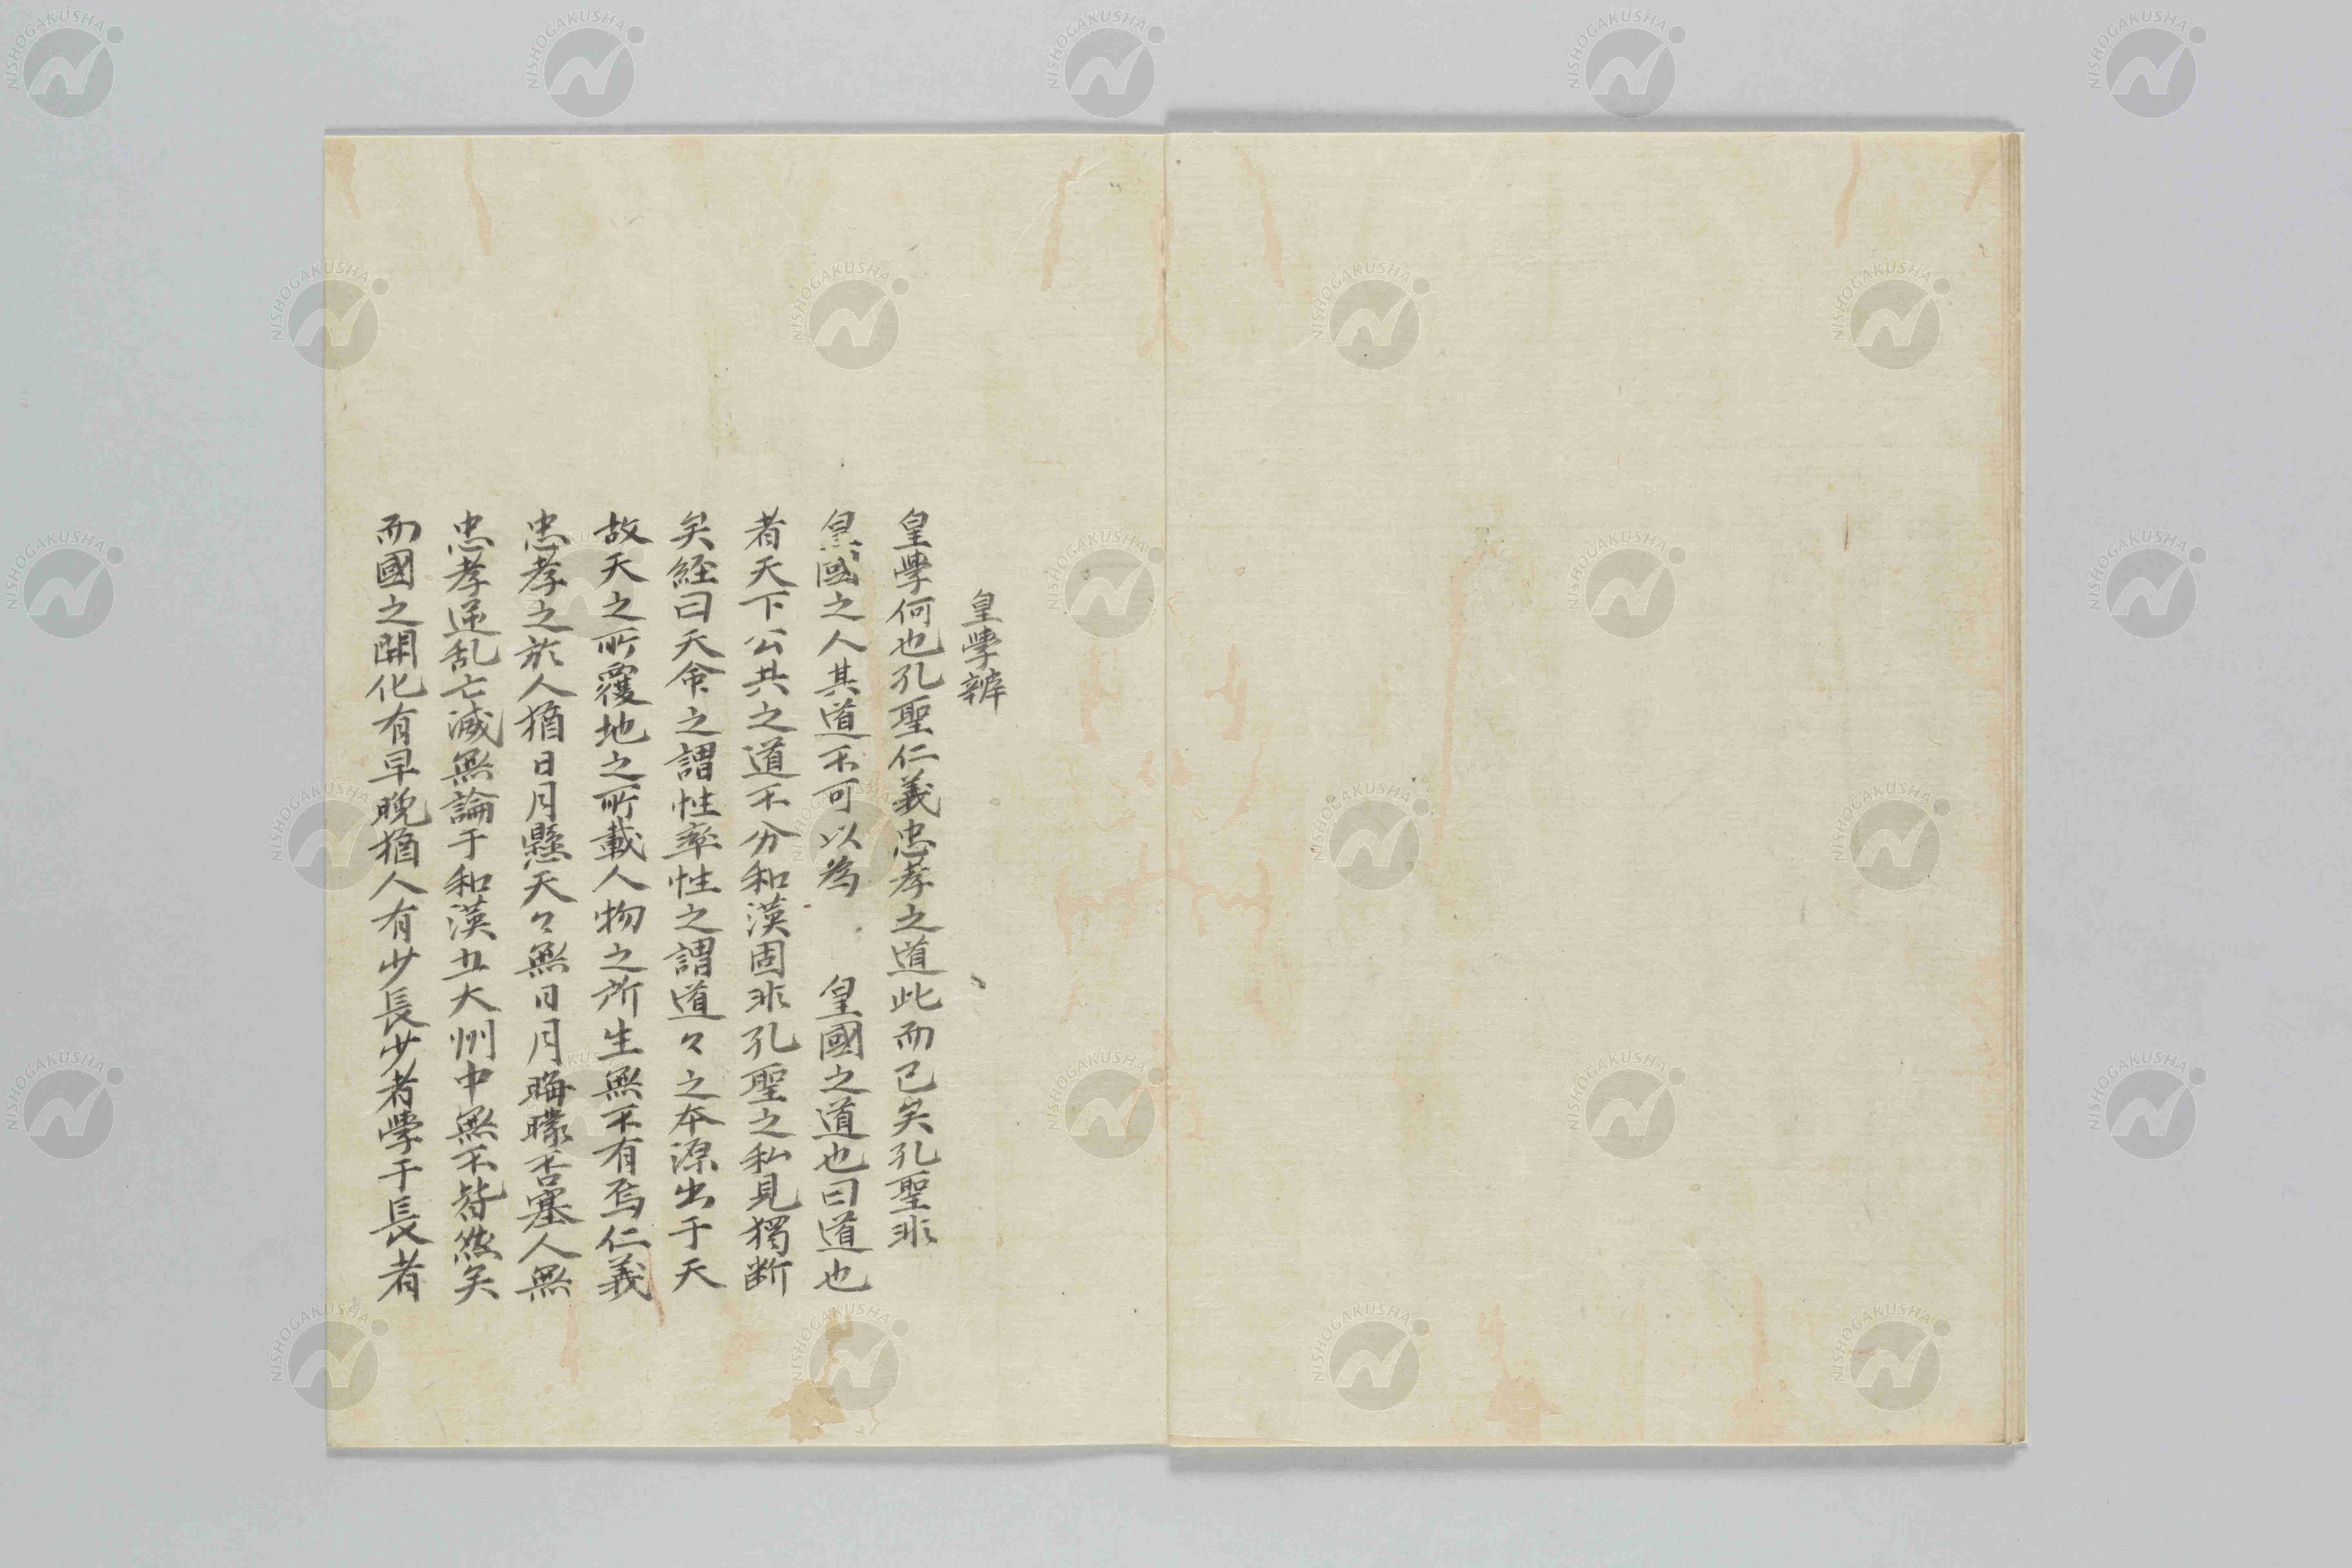 皇學辨
皇學何也孔聖仁義忠孝之道此而已矣孔聖非
皇國之人其道不可以為　皇國之道也曰道也
者天下公共之道不分和漢固非孔聖之私見獨断
矣經曰天命之謂性率性之謂道々之本源出于天
故天之所覆地之所載人物之所生無不有焉仁義
忠孝之於人猶日月懸天々無日月晦曚否塞人無
忠孝逆乱亡滅無論于和漢五大州中無不皆然矣
而國之開化有早晩猶人有少長少者學于長者
NISHOGAKUSHA